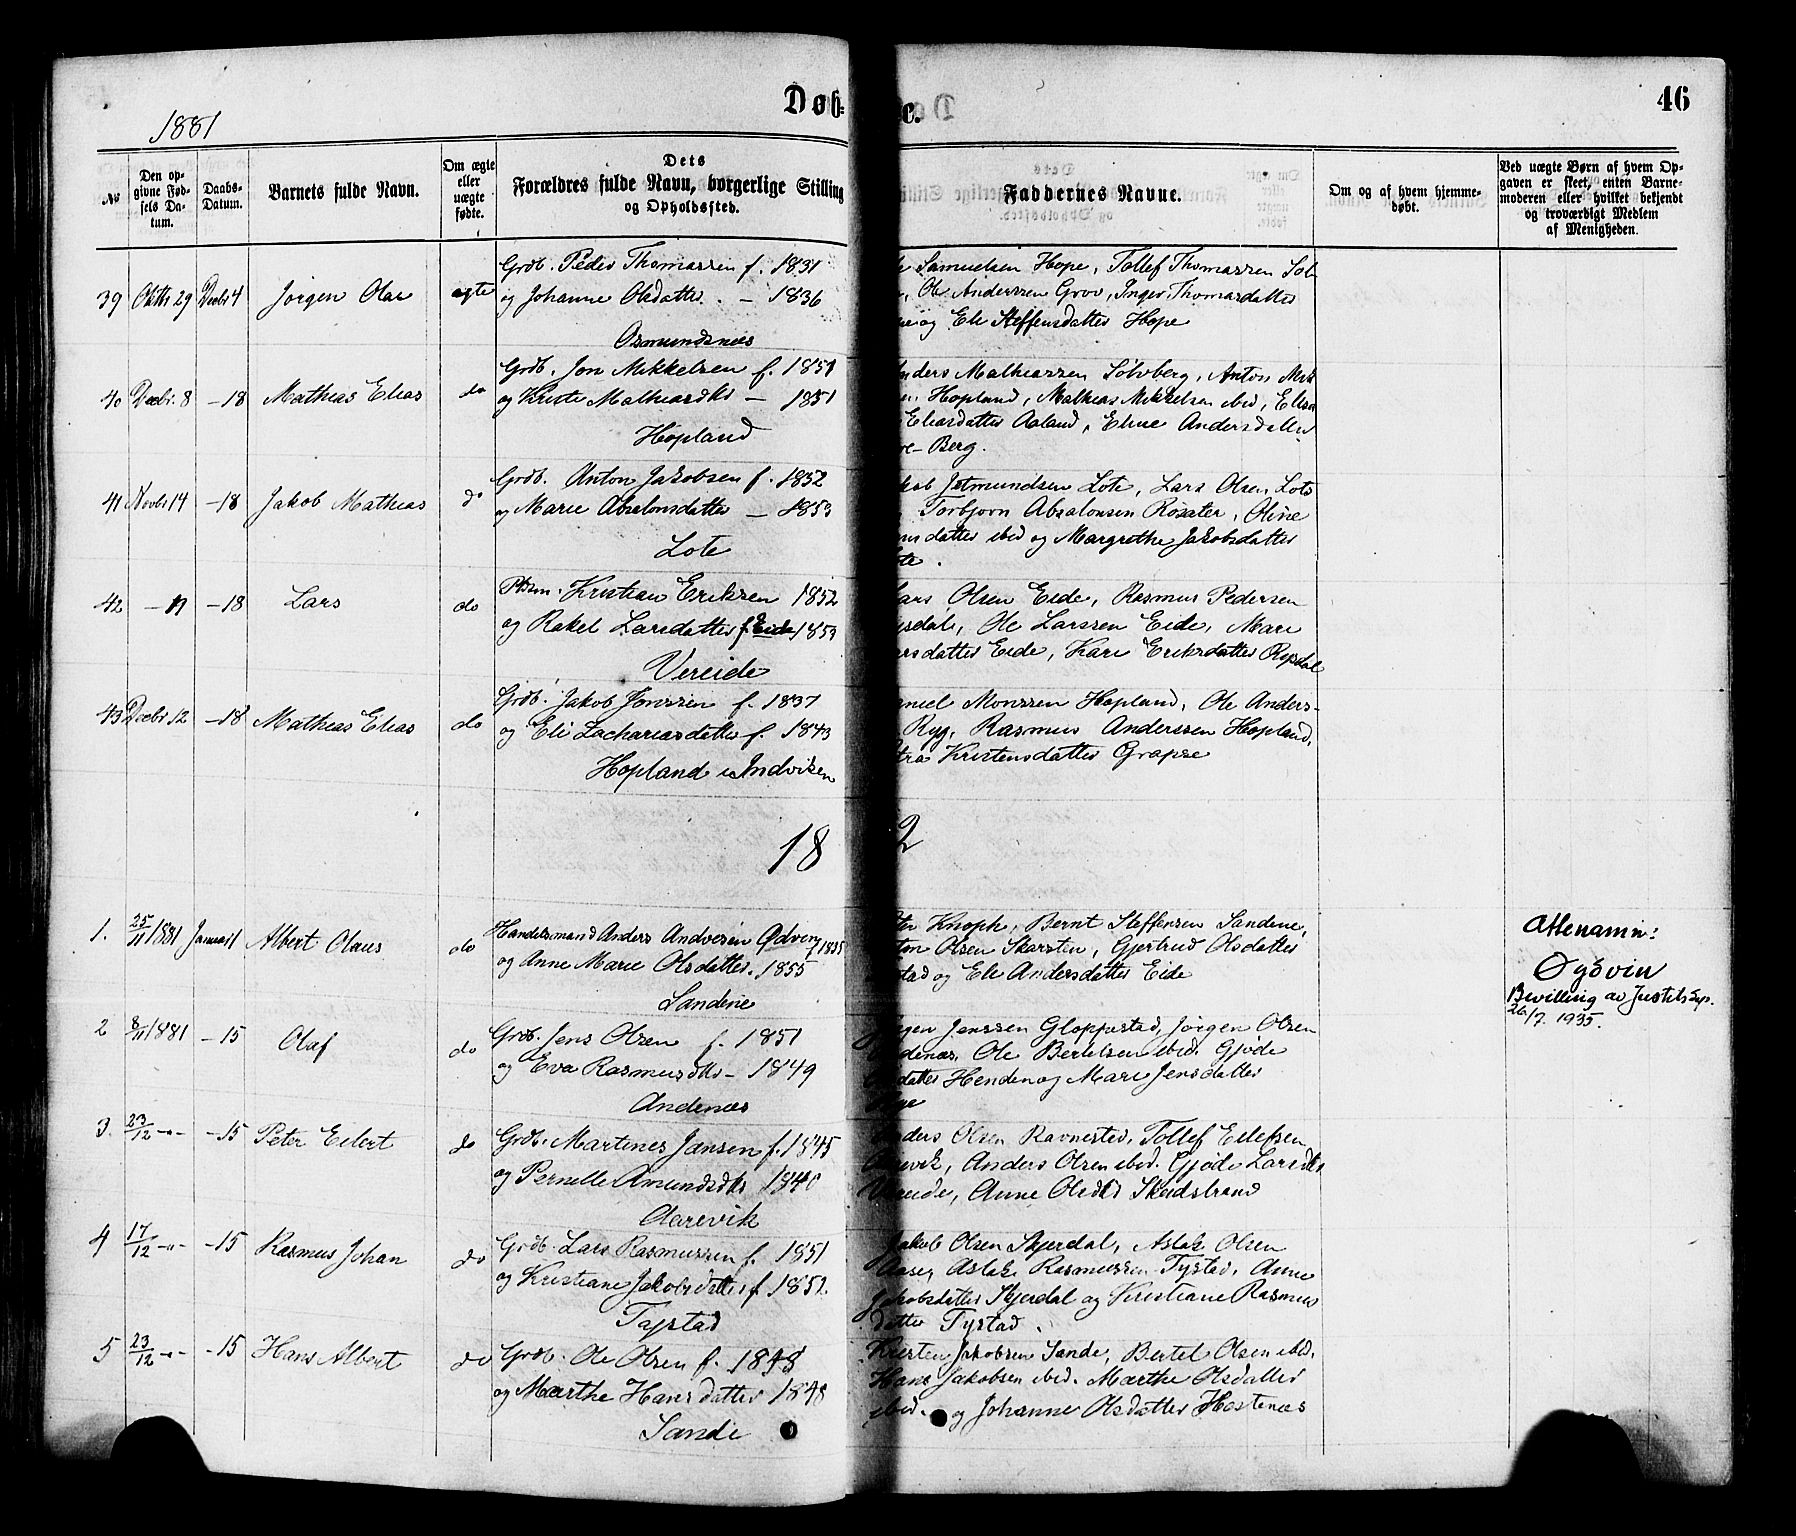 1881
Døb-
e.
46
No
Den opgivne Fødsels Datum.
Daabs-Datum.
Barnets fulde Navn.
Om ægte eller uægte fødte.
Dets Forældres fulde Navn, borgerlige Stilling og Opholdssted.
Faddernes Navne.
Om og af hvem hjemmedøbt.
Ved uægte Børn af hvem Opgaven er skeet, enten Barnemoderen eller hvilket bekjendt og troværdigt Medlem af Menigheden.
39 Oktbr 29 Decbr 4 Jørgen Olai ægte
Grdb. Peder Thomassen f. 1831
og Johanne Olsdatter - 1836
Osmundsnæs
Samuelsen Hope, Tollef Thomassen Sol
Ole Anderssen Grov, Inger Thomasdatter
og Eli Steffensdatter Hope
40 Decbr. 8 - 18 Mathias Elias do
Grdb. Jon Mikkelsen f. 1851
og Kristi Mathiasdtr - 1851
Hopland
nders Mathiassen Sølvberg, Anton Mik
n Hopland, Mathias Mikkelsen ibid, Elisa
Eliasdatter Aaland, Eline Andersdatter
re-Berg.
41 Novbr 14 - 18 Jakob Mathias do
Grdb. Anton Jakobsen f. 1852
og Marie Absalonsdatter - 1853
Lote
kob Jetmundsen Lote, Lars Olsen Lote
Torbjørn Absalonsen Røsæter, Oline
nsdatter ibid og Margrethe Jakobsdatter
te.
42 - 11 - 18 Lars do
Kristian Eriksen 1852
og Rakel Larsdatter f. Eide 1853
Vereide
ars Olsen Eide, Rasmus Pedersen
ysdal, Ole Larssen Eide, Mari
arsdatter Eide, Kari Eriksdatter Rysdal
43 Decbr 12 - 18 Mathias Elias do
Grdb. Jakob Jonssen f. 1837
og Eli Zachariasdatter f. 1843
Hopland i Indviken
aniel Monssen Hopland, Ole Anders-
Ryg, Rasmus Anderssen Hopland,
tra Kristensdatter Grapse
18 2
1. 25/11 1881 Januar 1 Albert Olaus do
Handelsmand Anders Andersen Ødven f 1835
og Anne Marie Olsdatter. 1855
Sandene
ter Knoph, Bernt Steffensen Sandene,
ton Olsen Skarsten, Gjertrud Olsdatter
stad og Eli Andersdatter Eide
Attenamn:
Øydvin
Bevilling av Justitsdep.
26/7. 1935.
2 8/11 1881 - 15 Olaf do
Grdb. Jens Olsen f. 1851
og Eva Rasmusdtr - 1849
Andenæs
rgen Jenssen Gloppestad, Jørgen Olsen
ndenæs, Ole Bertelsen ibid. Gjøde
datter Henden og Mari Jensdatter
3. 23/12 -"- - 15 Peter Eilert do
Grdb. Martines Jansen f. 1845
og Pernelle Amundsdtr 1840
Aarevik
nders Olsen Ravnestad, Tollef Eilefsen
arevik, Anders Olsen ibid. Gjøde Larsdtr
Vereide, Anne Olsdtr Skeidstrand
4 17/12 -"- - 15 Rasmus Johan do
Grdb. Lars Rasmussen f. 1851
og Kristiane Jakobsdatter f 1852.
Tystad
Jakob Olsen Skjerdal, Aslak Olsen
Aase, Aslak Rasmussen Tystad, Anne
Jakobsdatter Skjerdal og Kristiane Rasmus
datter Tystad.
5 23/12 -"- - 15 Hans Albert do
Grdb. Ole Olsen f. 1848
og Marthe Hansdatter 1848
Sande
Kristen Jakobsen Sande, Bertel Olsen ibid.
Hans Jakobsen ibid. Marthe Olsdatter
ibid. og Johanne Olsdatter Hestenæs